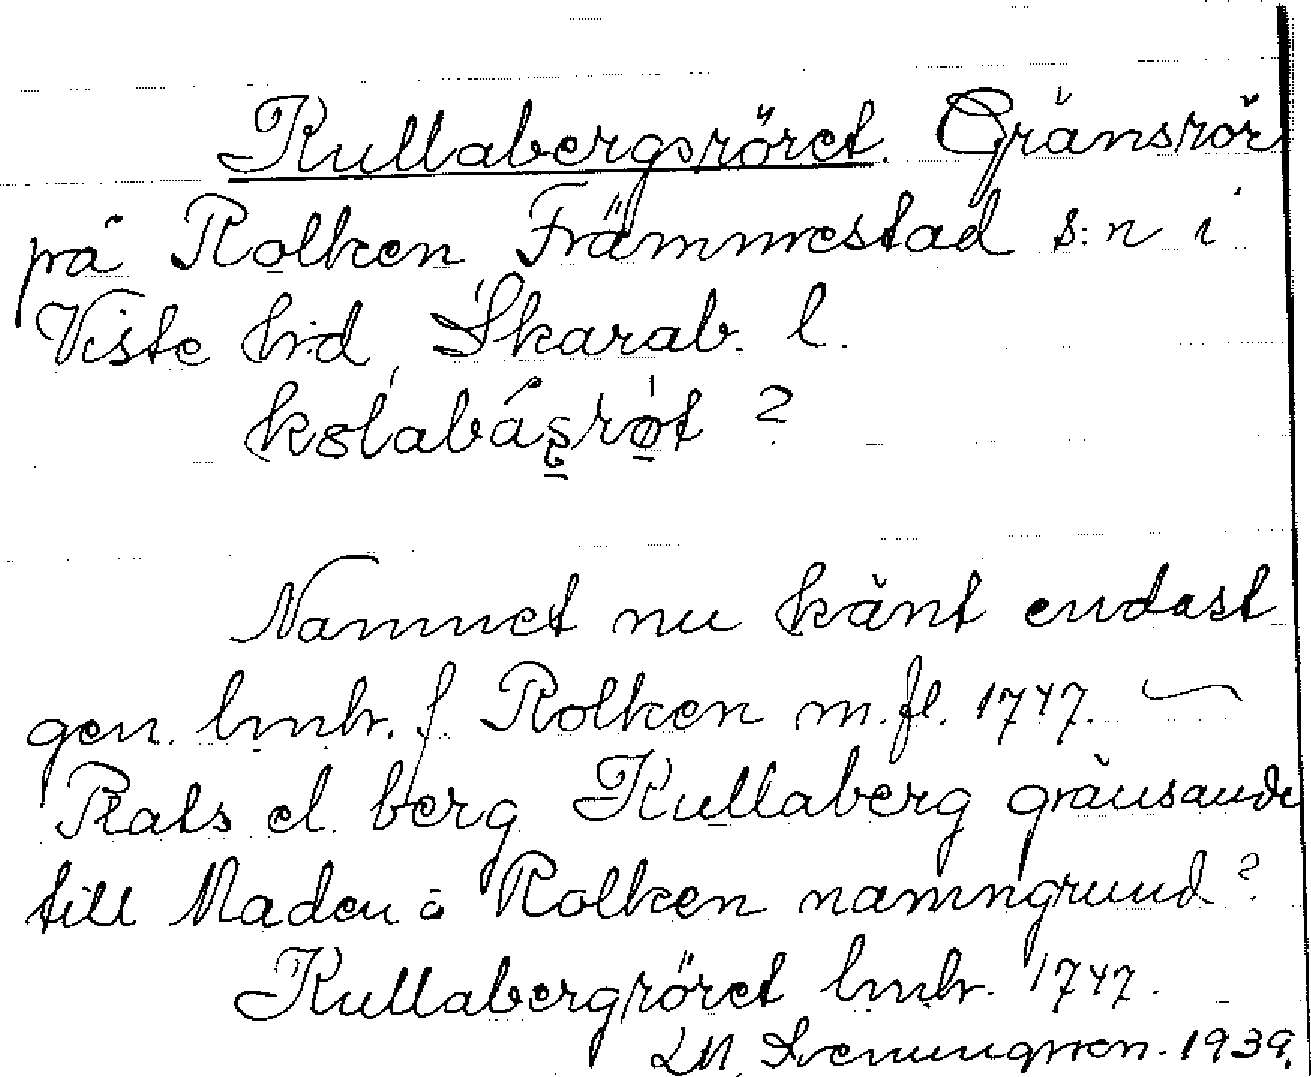 Kullabergsröret. Gränsrör
på Rolken Främmestad s:n i
Viste hd, Skarab. l.
?
Namnet nu känt endast
gen. lmhr. f. Rolken m.fl. 1747. —
Plats el. berg Kullaberg gränsande
till Maden å Rolken namngrund?
Kullabergröret lmhr. 1747.
1939.